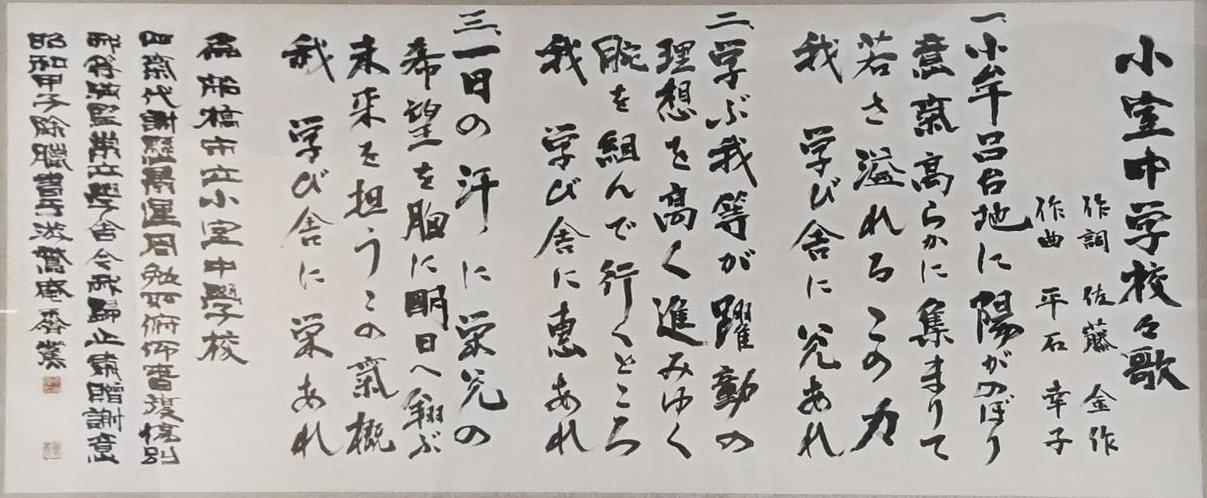 小室中学校々歌
作詞 佐藤金作
作曲 平石幸子
一、小牟呂台地に陽がのぼり
意氣高らかに集まりて
若さ溢れるこの力
我学び舎に光あれ
二、学ぶ我等が躍動の
理想を高く進みゆく
腕を組んで行くところ
我学び舎に恵あれ
三、一日の汗に栄光の
希望を胸に明日へ翔ぶ
未来を担うこの氣概
我学び舎に栄あれ
為船橋市立小室中學校
四氣代謝
學舎今我歸止 贈謝意
昭和甲子除臘書于